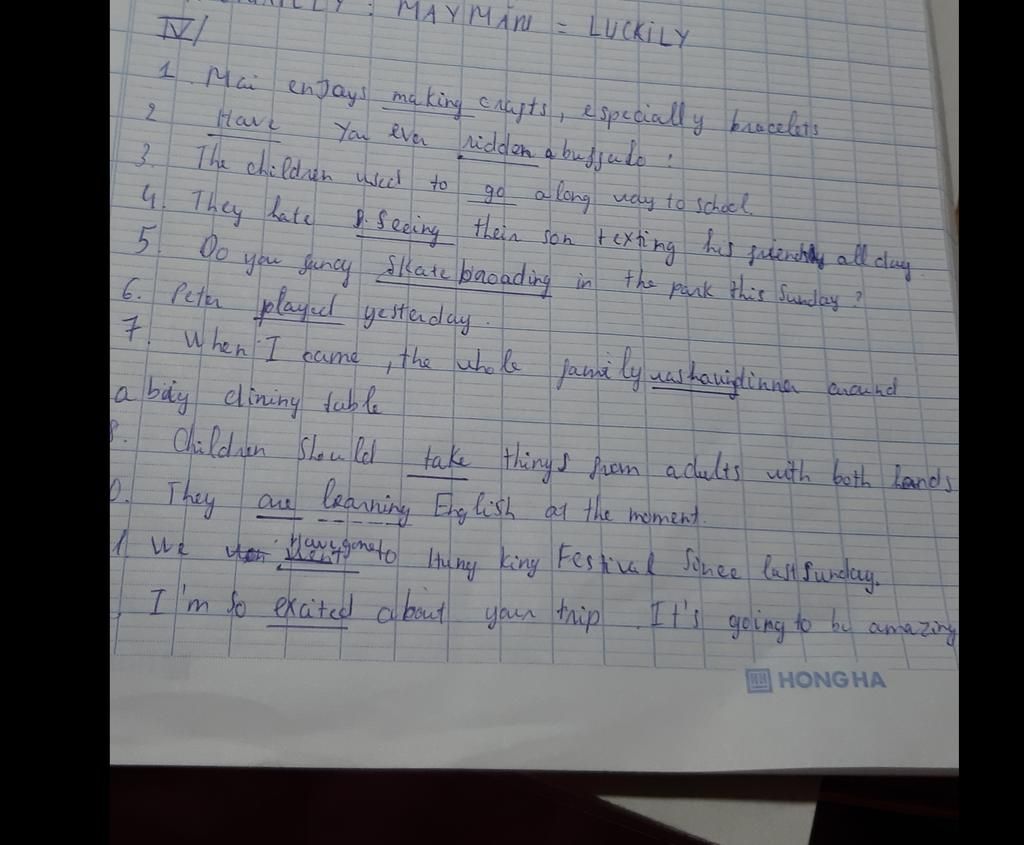 : MAYMAN = LUCKILY
IV/
1. Mai enjays making crafts, especially bracelets
2 Have you ever ridden a buffalo?
3. The children used to go a long way to school.
4. They hate seeing their son texting his friends all day.
5. Do you fancy Skate broading in the park this Sunday?
6. Peter played yesterday.
7. When I came, the whole family was having dinner around
a bigy dining table
8. Children should take things from adults with both hands
0. They are learning English at the moment.
1. We have gone to Hung king Festival Since last Sunday.
I'm so excited about your trip. It's going to be amazing
HONG HA